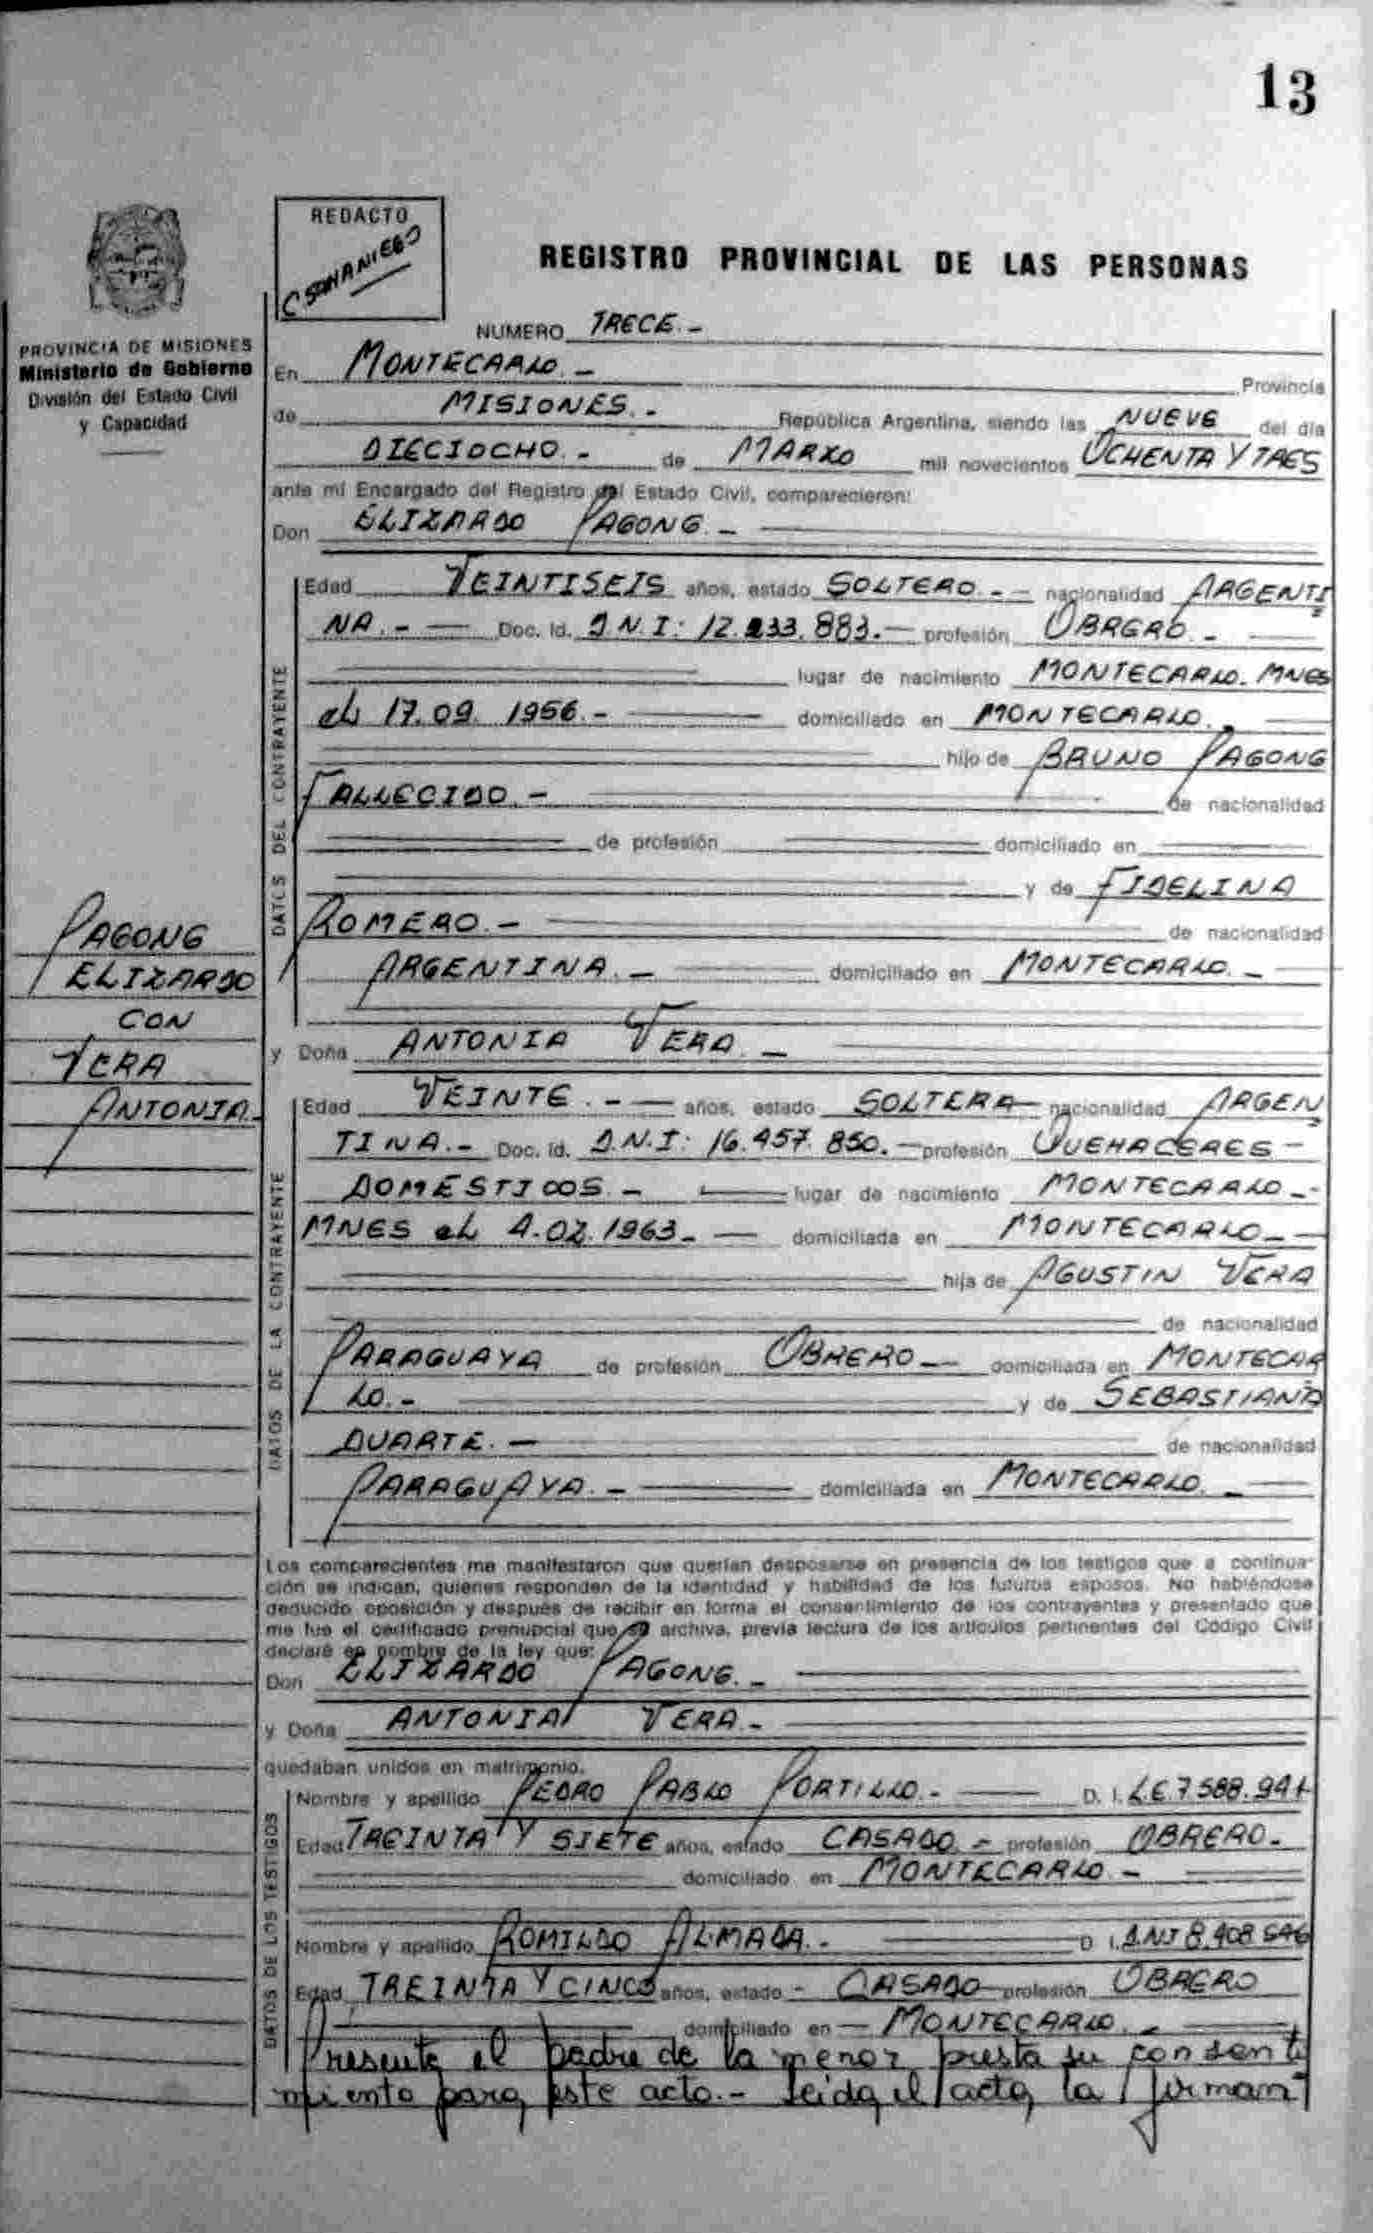 13
REDACTO
C SAMANIEGO
REGISTRO PROVINCIAL DE LAS PERSONAS
PROVINCIA DE MISIONES
Ministerio de Gobierno
División del Estado Civil
y Capacidad
NUMERO TRECE.-
En MONTECARLO.- Provincia
de MISIONES.- República Argentina, siendo las NUEVE del día
DIECIOCHO.- de MARZO mil novecientos OCHENTA Y TRES
ante mí Encargado del Registro del Estado Civil, comparecieron:
Don ELIZARDO PAGONG.-
DATOS DEL CONTRAYENTE
Edad VEINTISEIS años, estado SOLTERO.- nacionalidad ARGENTI
NA.- Doc. Id. D.N.I: 12.233.883.- profesión OBRERO.-
lugar de nacimiento MONTECARLO. MNES
el 17.09.1956.- domiciliado en MONTECARLO.
hijo de BRUNO PAGONG
FALLECIDO.- de nacionalidad
de profesión domiciliado en
y de FIDELINA
ROMERO.- de nacionalidad
ARGENTINA.- domiciliado en MONTECARLO.-
PAGONG
ELIZARDO
CON
VERA
ANTONIA.
y Doña ANTONIA VERA.-
DATOS DE LA CONTRAYENTE
Edad VEINTE.- años, estado SOLTERA- nacionalidad ARGEN
TINA.- Doc. Id. D.N.I: 16.457.850.- profesión QUEHACERES-
DOMESTICOS.- lugar de nacimiento MONTECARLO.-
MNES el 4.02.1963.- domiciliada en MONTECARLO.-
hija de AGUSTIN VERA
de nacionalidad
PARAGUAYA de profesión OBRERO.- domiciliada en MONTECAR
LO.- y de SEBASTIANA
DUARTE.- de nacionalidad
PARAGUAYA.- domiciliada en MONTECARLO.-
Los comparecientes me manifestaron que querían desposarse en presencia de los testigos que a continua-
ción se indican, quienes responden de la identidad y habilidad de los futuros esposos. No habiéndose
deducido oposición y después de recibir en forma el consentimiento de los contrayentes y presentado que
me fue el certificado prenupcial que se archiva, previa lectura de los artículos pertinentes del Código Civil
declaré en nombre de la ley que:
Don ELIZARDO PAGONG.-
y Doña ANTONIA VERA.-
quedaban unidos en matrimonio.
DATOS DE LOS TESTIGOS
Nombre y apellido PEDRO PABLO PORTILLO.- D. I. L.E 7.588.941
Edad TREINTA Y SIETE años, estado CASADO.- profesión OBRERO.-
domiciliado en MONTECARLO.-
Nombre y apellido ROMILDO ALMADA.- D I. DNI 8.408.546
Edad TREINTA Y CINCO años, estado - CASADO profesión OBRERO
domiciliado en - MONTECARLO.-
Presente el padre de la menor presta su consenti
miento para este acto.- Leida el acta, la firman